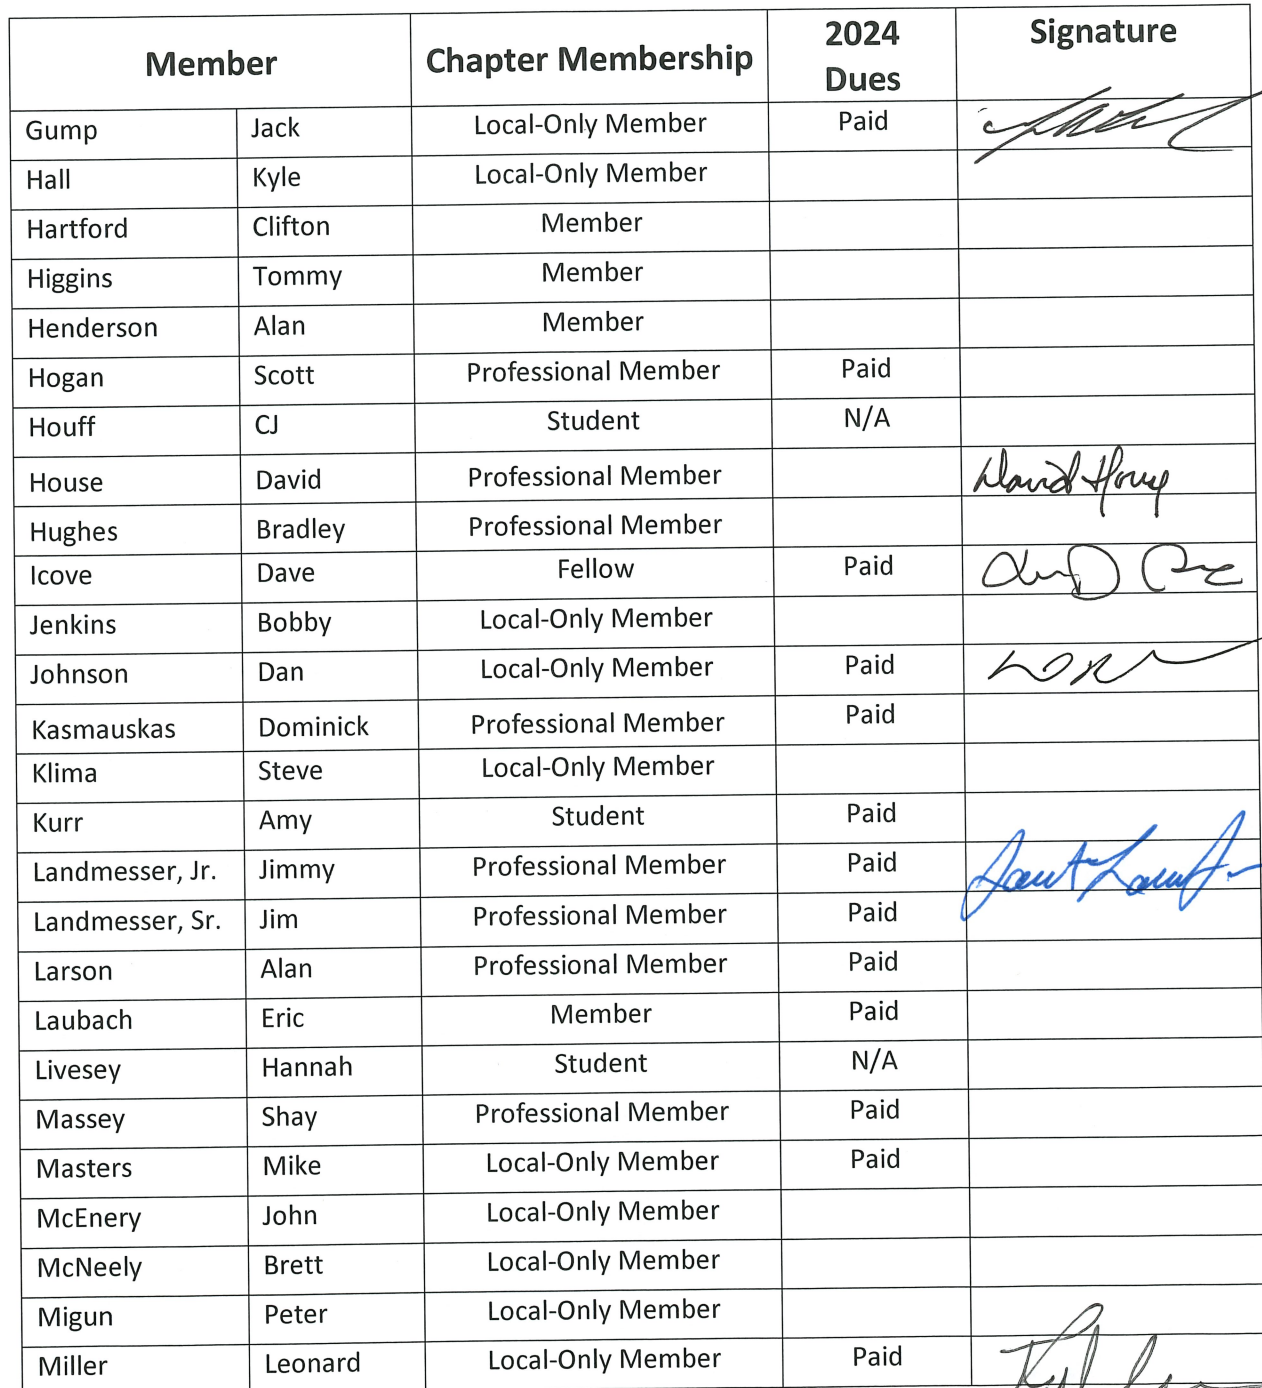 Member Chapter Membership 2024 Dues Signature
Gump Jack Local-Only Member Paid
Hall Kyle Local-Only Member
Hartford Clifton Member
Higgins Tommy Member
Henderson Alan Member
Hogan Scott Professional Member Paid
Houff CJ Student N/A
House David Professional Member David House
Hughes Bradley Professional Member
Icove Dave Fellow Paid
Jenkins Bobby Local-Only Member
Johnson Dan Local-Only Member Paid
Kasmauskas Dominick Professional Member Paid
Klima Steve Local-Only Member
Kurr Amy Student Paid
Landmesser, Jr. Jimmy Professional Member Paid
Landmesser, Sr. Jim Professional Member Paid
Larson Alan Professional Member Paid
Laubach Eric Member Paid
Livesey Hannah Student N/A
Massey Shay Professional Member Paid
Masters Mike Local-Only Member Paid
McEnery John Local-Only Member
McNeely Brett Local-Only Member
Migun Peter Local-Only Member
Miller Leonard Local-Only Member Paid